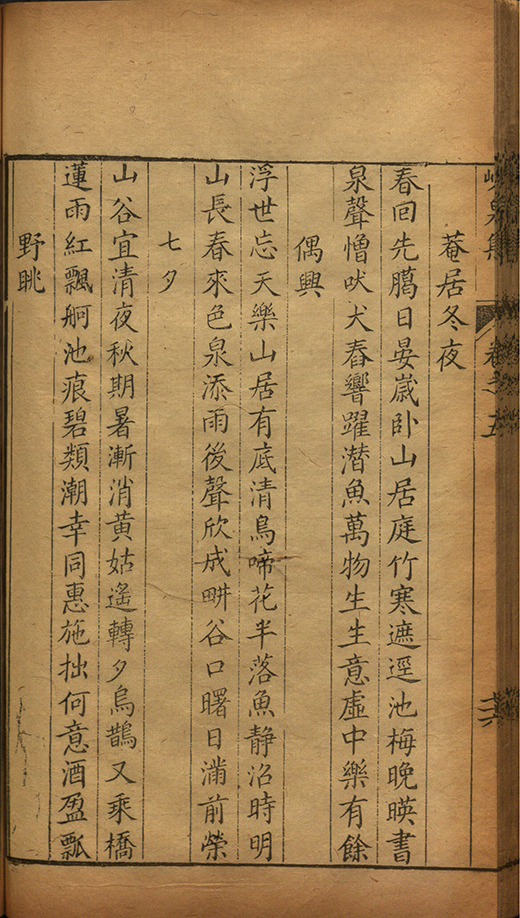 菴居冬夜
春回先臈日晏嵗卧山居庭竹寒遮逕池梅晚暎書
泉聲憎吠犬舂響躍潜魚萬物生生意虛中樂有餘
偶興
浮世忘天樂山居有底清鳥啼花半落魚静沼時明
山長春來色泉添雨後聲欣成畊谷口曙日滿前榮
七夕
山谷宜清夜秋期暑漸消黄姑遙轉夕烏鵲又乘橋
蓮雨紅飄舸池痕碧類潮幸同惠施拙何意酒盈瓢
野眺